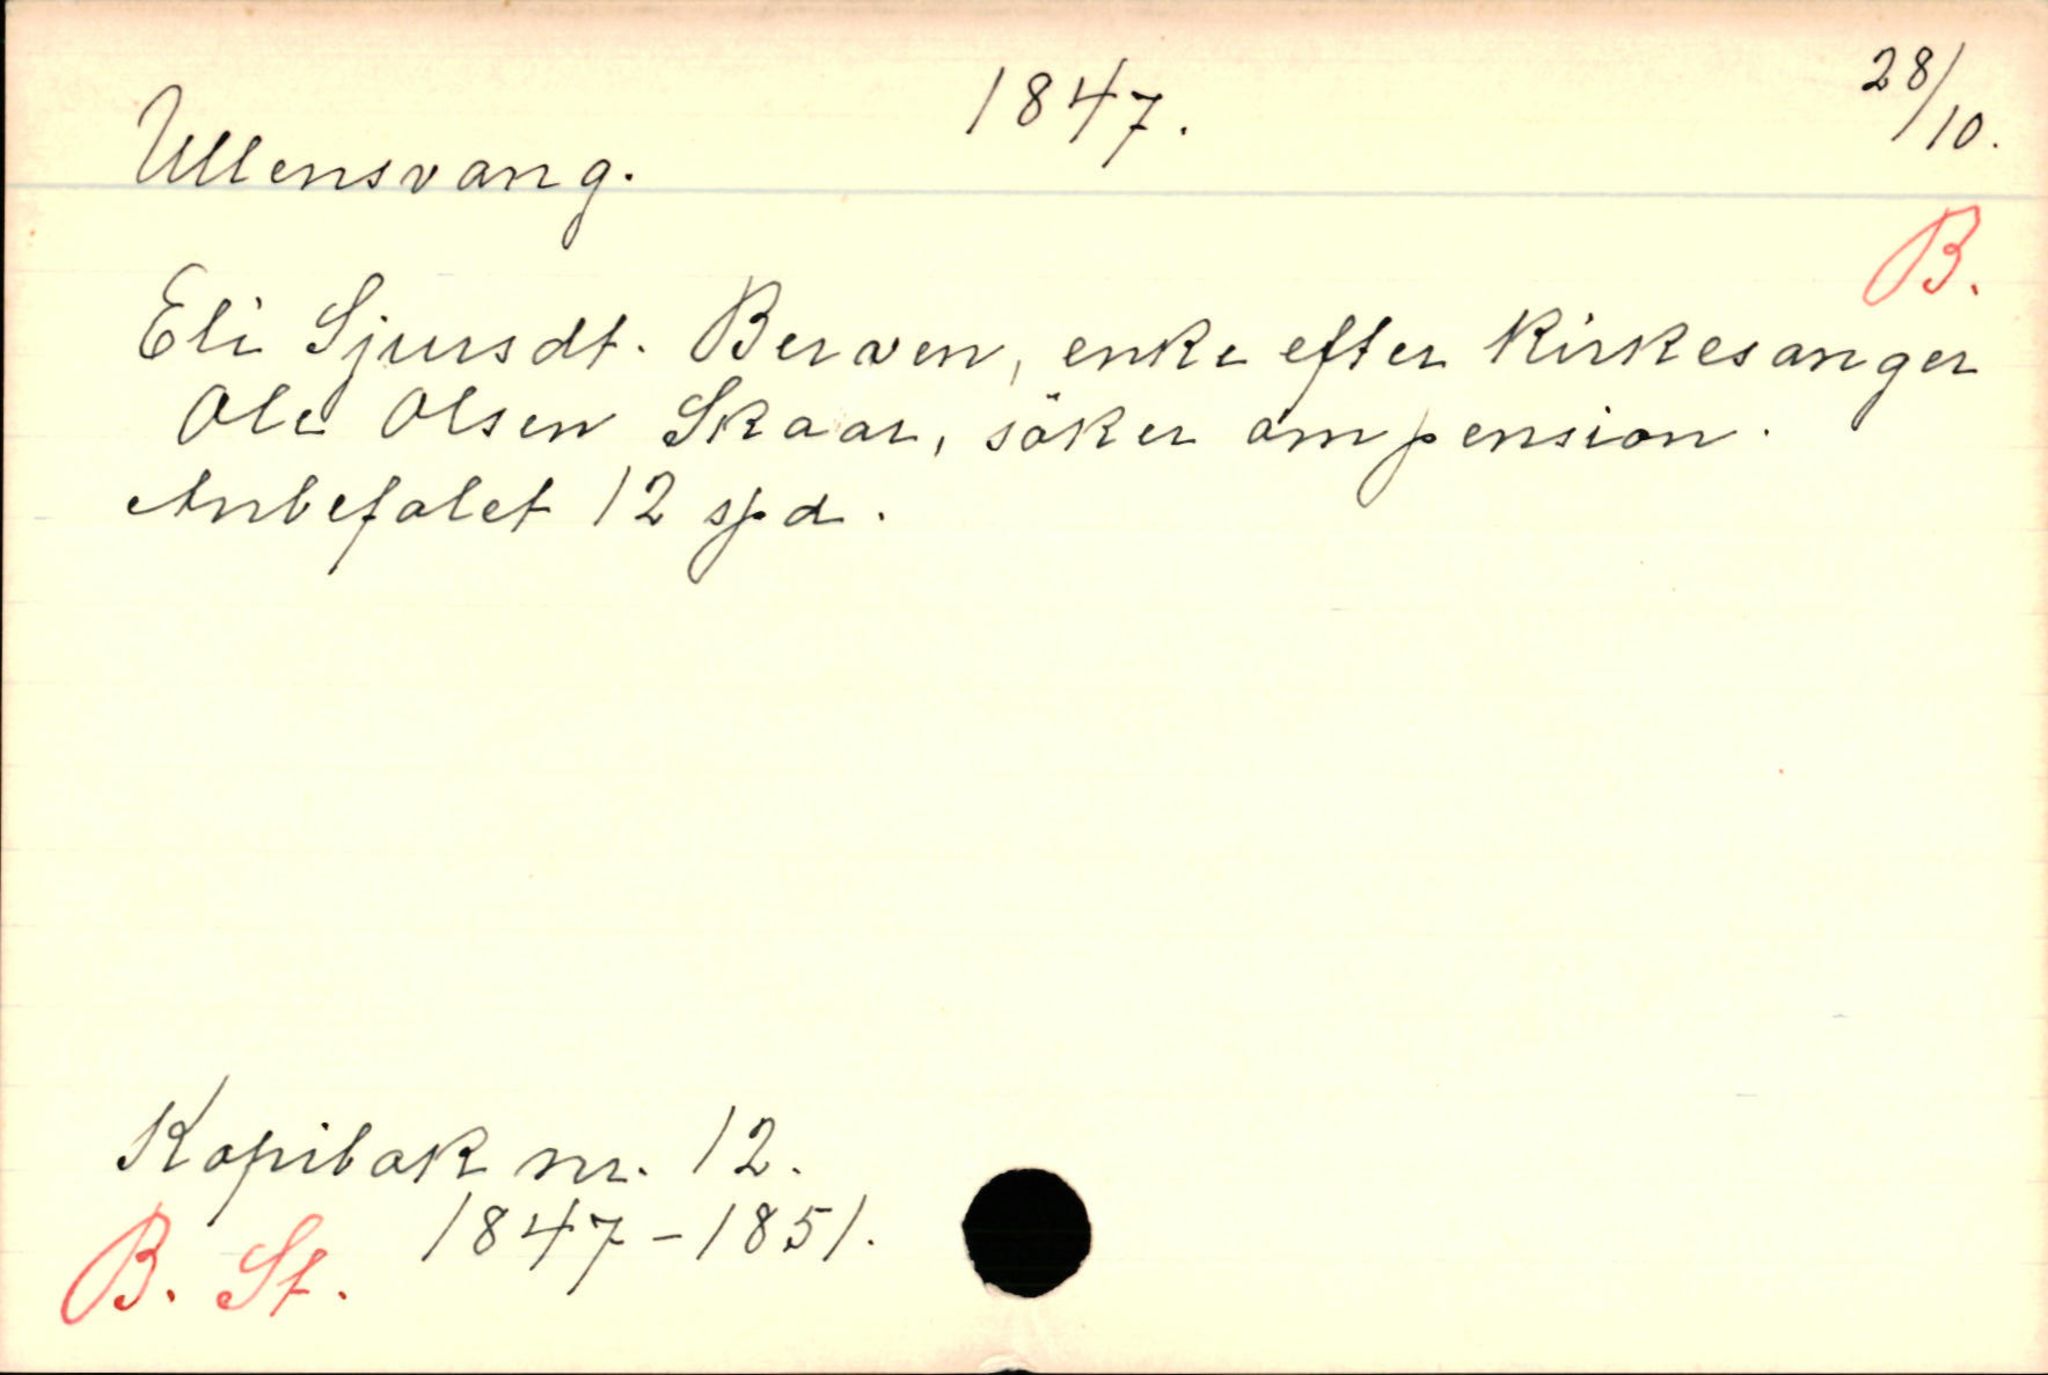 Ullensvang. 1847. 28/10.
B.
Eli Sjursdt. Berven, enke efter Kirkesanger
Ole Olsen Skaar, söker om pension.
Anbefalet 12 spd.
Kopibok nr. 12.
1847-1851.
B. St.